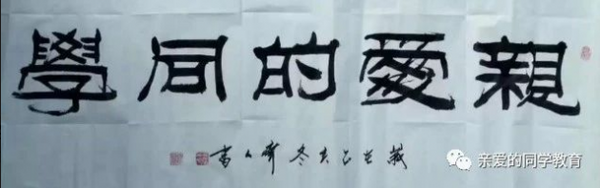 親愛的同學
歲在己亥冬書
亲爱的同学教育